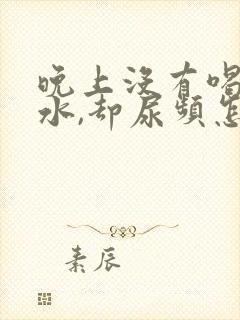 晚上没有喝
水,却尿频怎
素辰